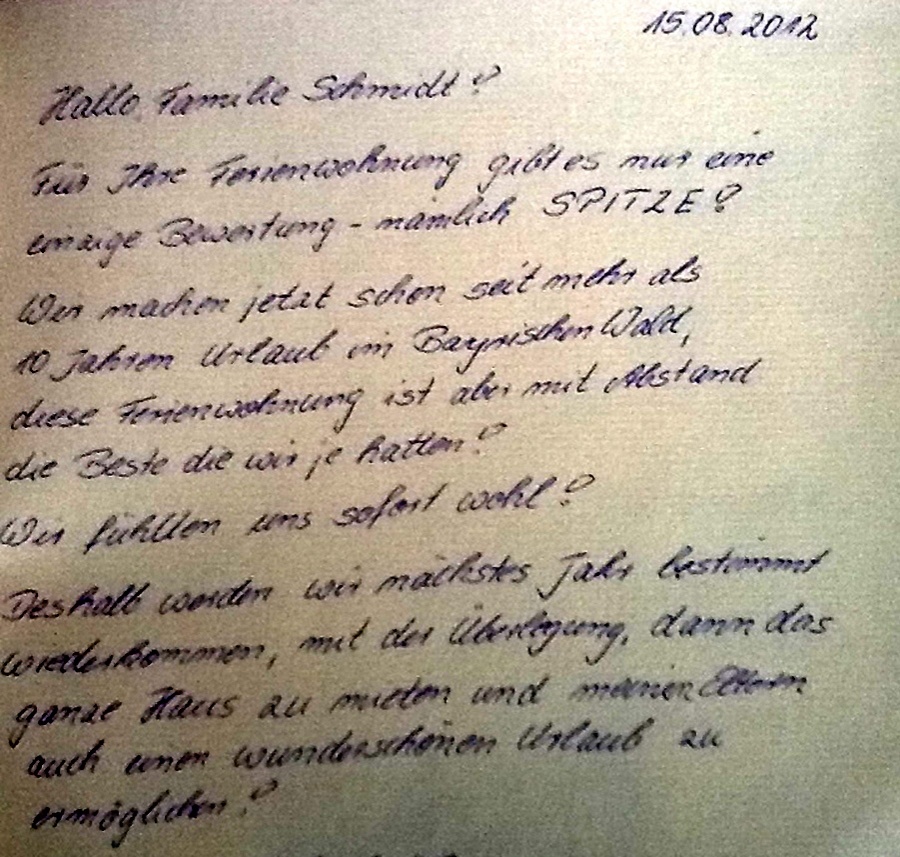 15.08.2012
Hallo Familie Schmidt!
Für Ihre Ferienwohnung gibt es nur eine
einzige Bewertung - nämlich SPITZE!
Wir machen jetzt schon seit mehr als
10 Jahren Urlaub im Bayrischen Wald,
diese Ferienwohnung ist aber mit Abstand
die Beste die wir je hatten!
Wir fühlten uns sofort wohl!
Deshalb werden wir nächstes Jahr bestimmt
wiederkommen, mit der Überlegung, dann das
ganze Haus zu mieten und meinen Eltern
auch einen wunderschönen Urlaub zu
ermöglichen!